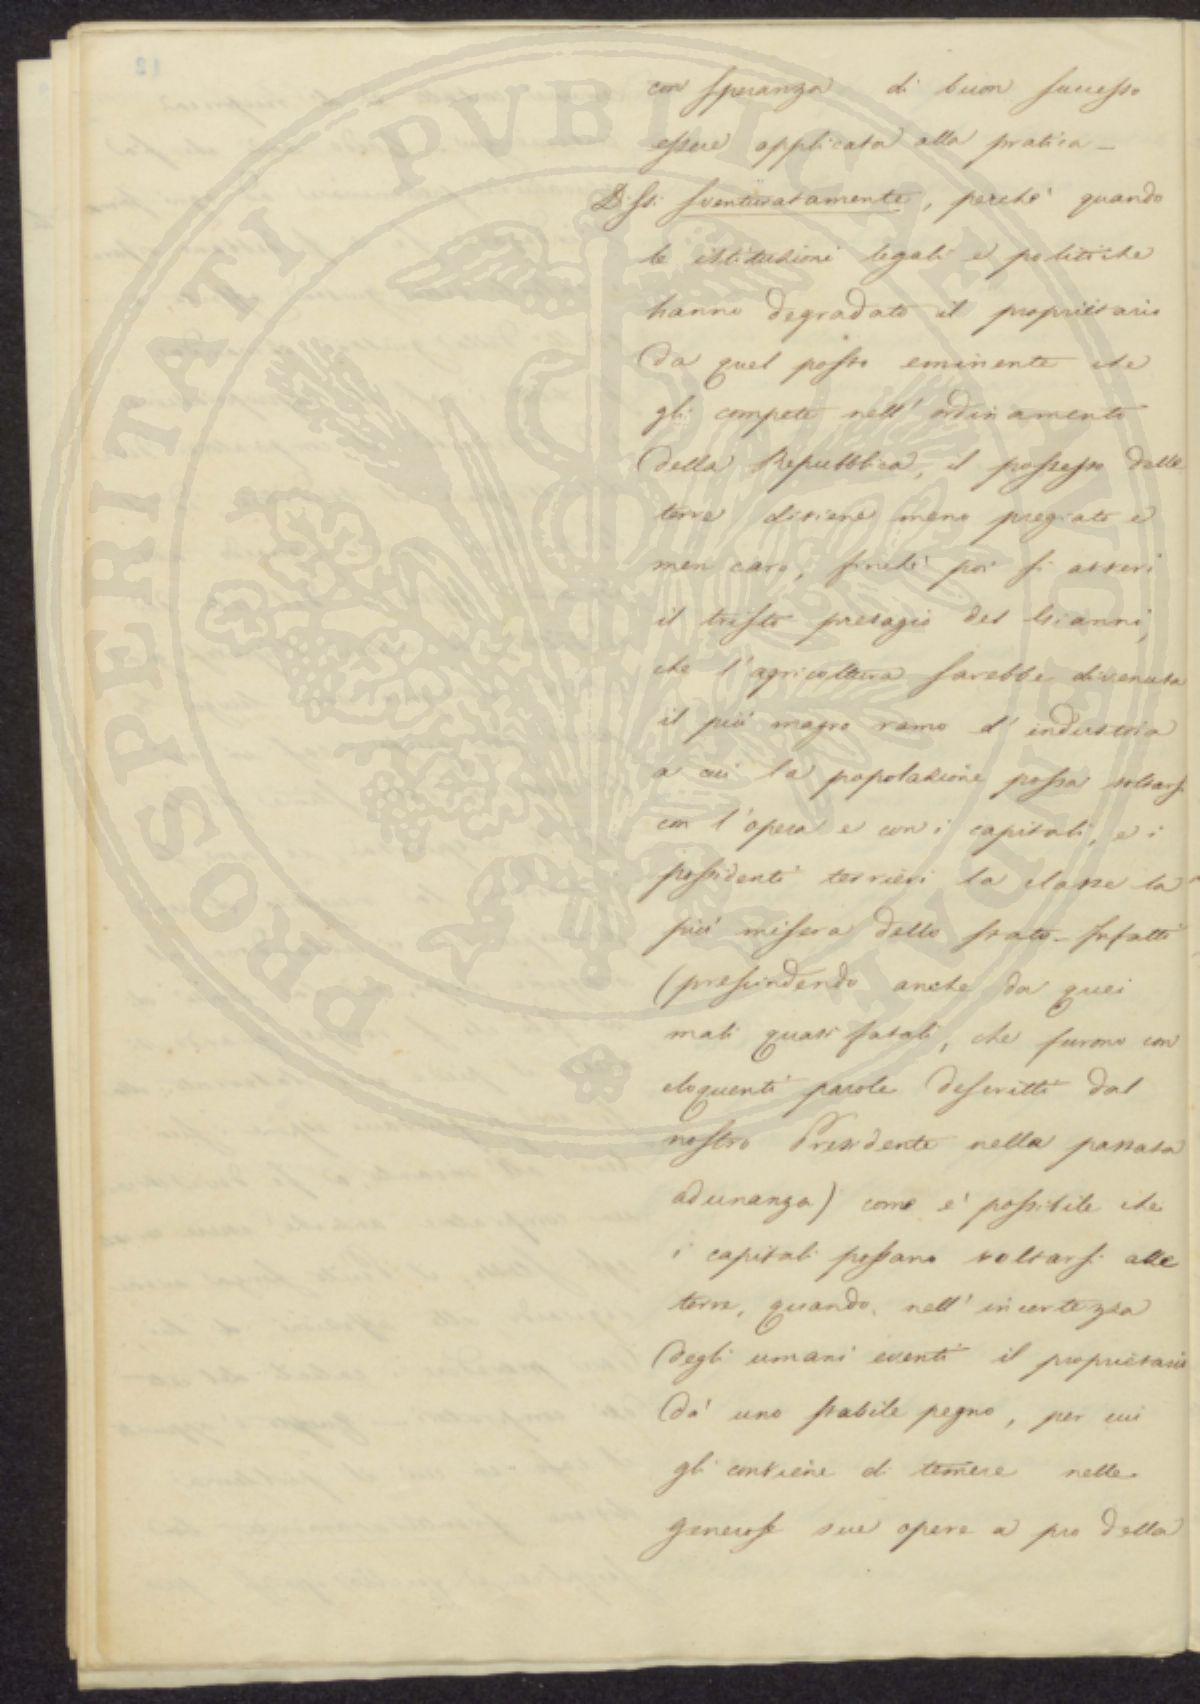 con speranza di buon successo
essere applicata alla pratica _
Dissi sventuratamente, perchè quando
le istituzioni legali e politiche
hanno degradato il proprietario
da quel posto eminente che
gli compete nell' ordinamento
della Repubblica, il possesso delle
terre diviene meno pregiato e
men caro, finchè poi si avveri
il tristo presagio del Gianni,
che l'agricoltura sarebbe divenuta
il più magro ramo d' industria
a cui la popolazione possa voltarsi
con l'opera e con i capitali, e i
possidenti terrieri la classe la
più misera dello stato _ Infatti
(prescindendo anche da quei
mali quasi fatali, che furono con
eloquenti parole descritti dal
nostro Presidente nella passata
adunanza) come è possibile che
i capitali possano voltarsi alle
terre, quando, nell' incertezza
degli umani eventi il proprietario
dà uno stabile pegno, per cui
gli conviene di temere nelle
generose sue opere a pro della
PROSPERITATI PVBLICAE